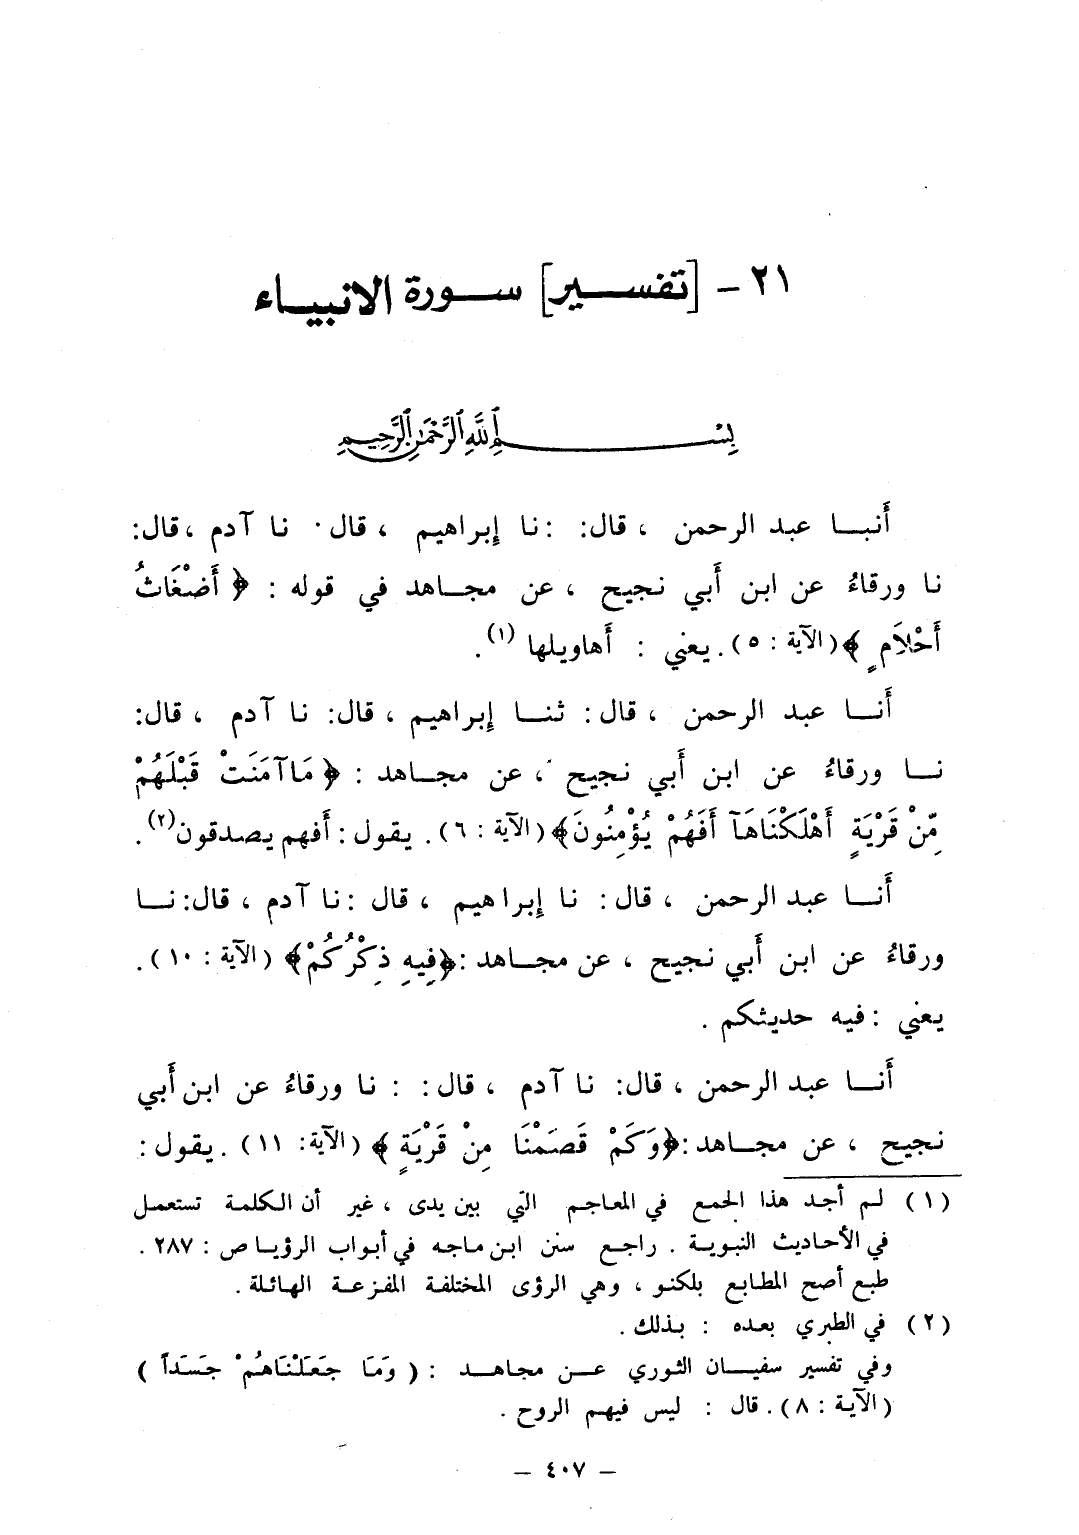 ٢١ - [تفسير] سورة الانبياء
بِسْمِ اللَّهِ الرَّحْمَٰنِ الرَّحِيمِ
أنبا عبد الرحمن ، قال: :نا إبراهيم ، قال · نا آدم ، قال:
نا ورقاءُ عن ابن أبي نجيح ، عن مجاهد في قوله : ﴿ أَضْغَاثُ
أَحْلَامٍ ﴾ (الآية : ٥). يعني : أهاويلها (١).
أنا عبد الرحمن ، قال : ثنا إبراهيم ، قال: نا آدم ، قال:
نا ورقاءُ عن ابن أبي نجيح ، عن مجاهد : ﴿ مَا آمَنَتْ قَبْلَهُمْ
مِّنْ قَرْيَةٍ أَهْلَكْنَاهَآ أَفَهُمْ يُؤْمِنُونَ﴾ (الآية : ٦). يقول : أفهم يصدقون(٢) .
أنا عبد الرحمن ، قال : نا إبراهيم ، قال :نا آدم ، قال: نا
ورقاءُ عن ابن أبي نجيح ، عن مجاهد :﴿فِيهِ ذِكْرُكُمْ﴾ (الآية : ١٠).
يعني : فيه حديثكم .
أنا عبد الرحمن ، قال: نا آدم ، قال : : نا ورقاءُ عن ابن أبي
نجيح ، عن مجاهد :﴿وَكَمْ قَصَمْنَا مِنْ قَرْيَةٍ ﴾ (الآية: ١١) . يقول :
(١) لم أجد هذا الجمع في المعاجم التي بين يدى ، غير أن الكلمة تستعمل
في الأحاديث النبوية . راجع سنن ابن ماجه في أبواب الرؤيا ص : ٢٨٧ .
طبع أصح المطابع بلكنو ، وهي الرؤى المختلفة المفزعة الهائلة .
(٢) في الطبري بعده : بذلك .
وفي تفسير سفيان الثوري عن مجاهد : ( وَمَا جَعَلْنَاهُمْ جَسَداً )
(الآية : ٨). قال : ليس فيهم الروح .
– ٤٠٧ –